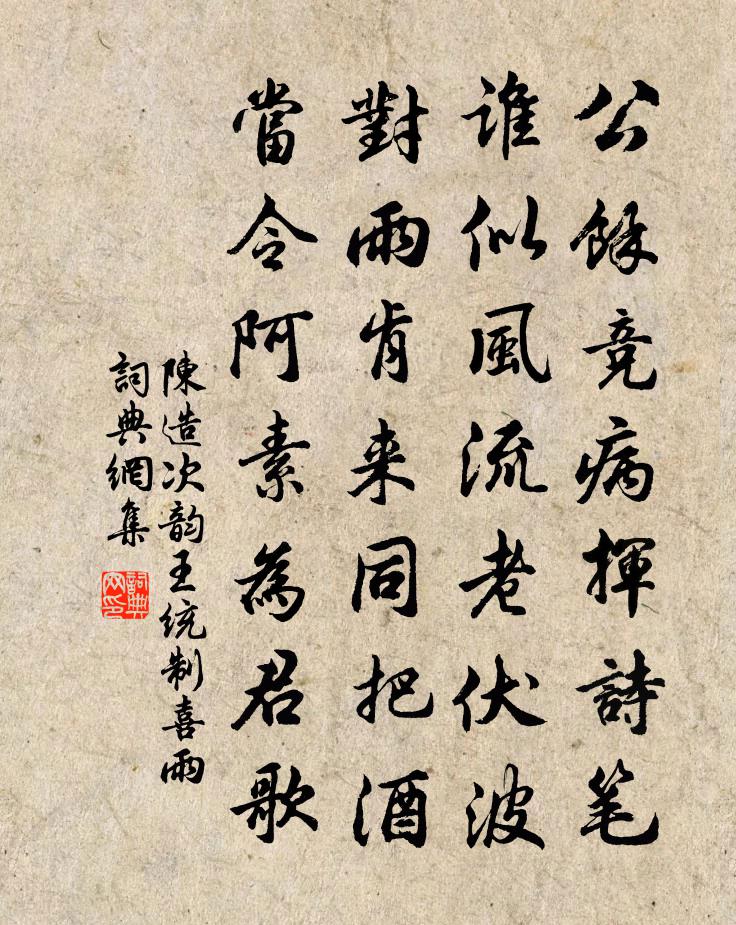 公餘竞病揮詩笔
誰似風流老伏波
對雨肯来同把酒
當令阿素為君歌
陳造次韵王统制喜雨
詞典網集
詞典网印